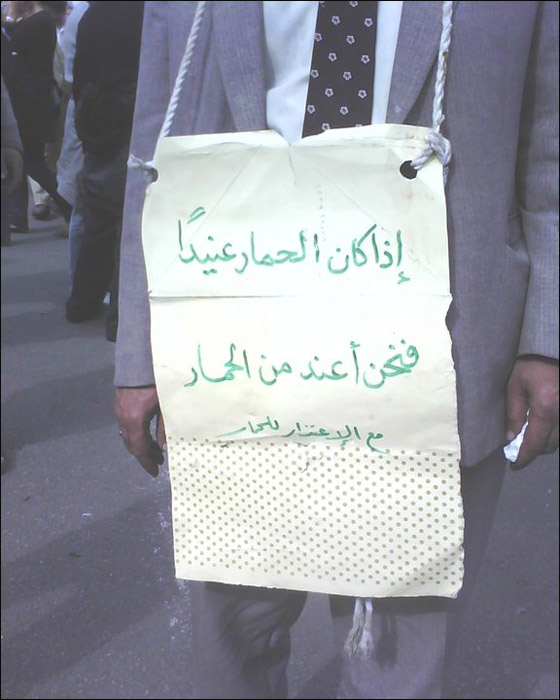 إذا كان الحمار عنيدًا
فنحن أعند من الحمار
مع الإعتذار للحمار